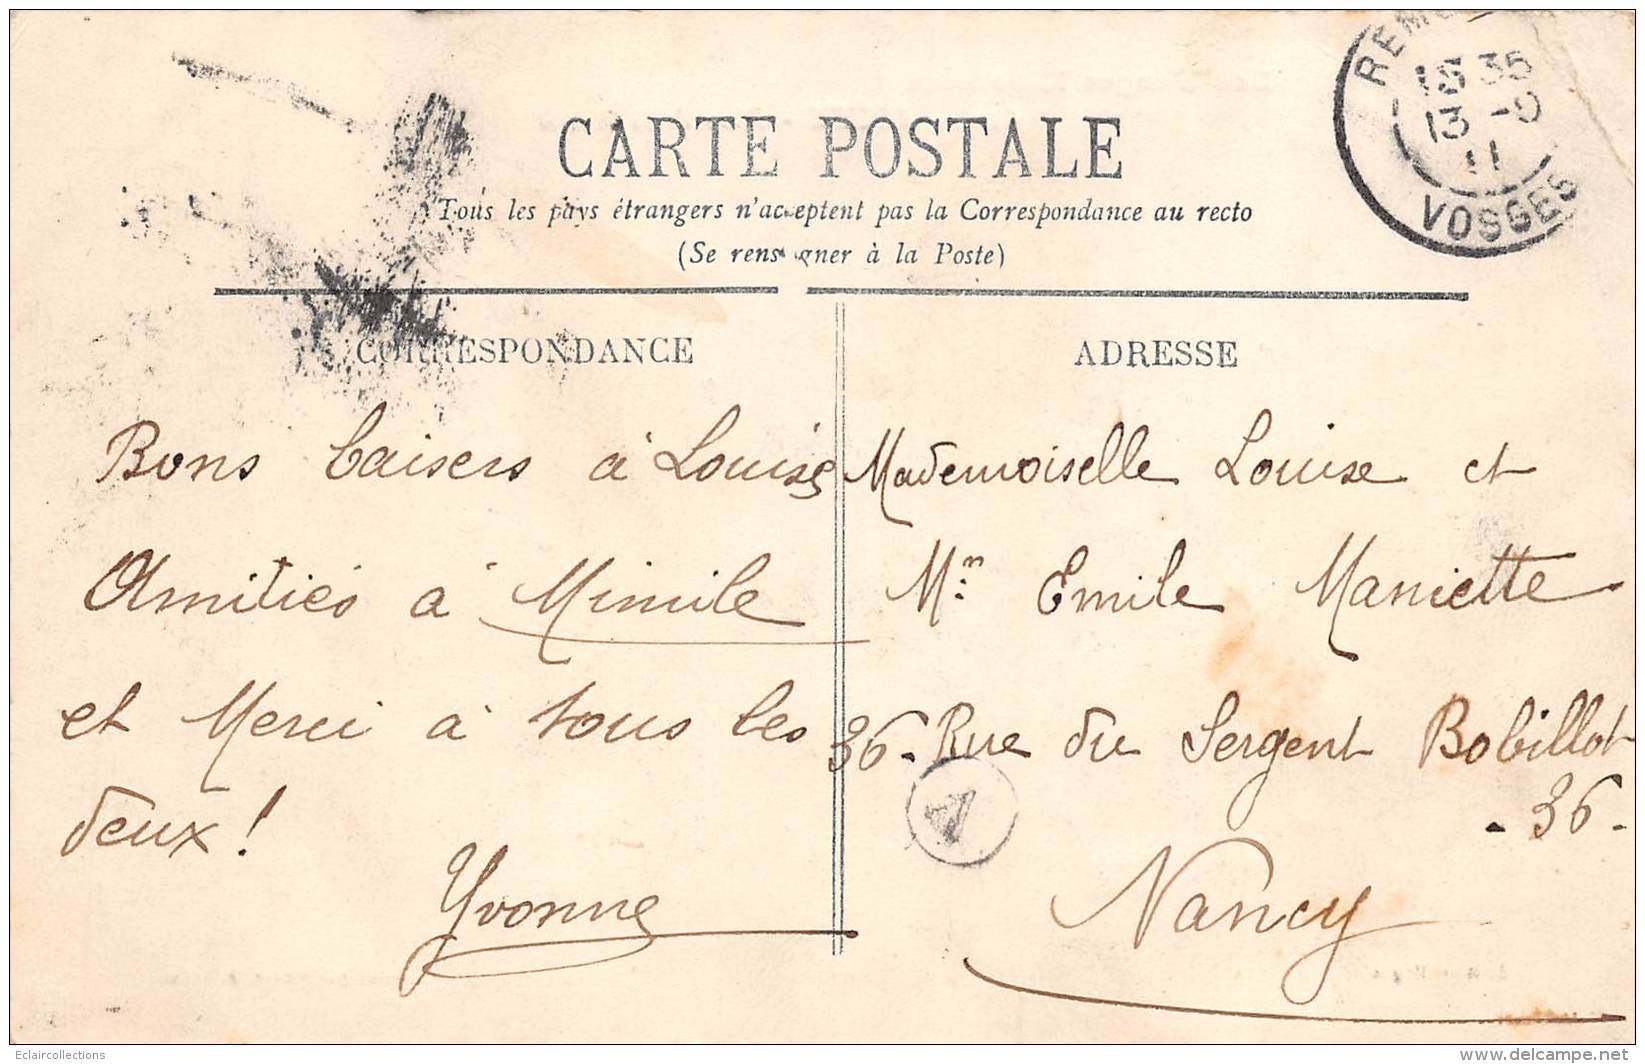 CARTE POSTALE
Tous les pays étrangers n'acceptent pas la Correspondance au recto
(Se renseigner à la Poste)
VOSGES
13
11
CORRESPONDANCE
Bons baisers à Louise
Amitiés à Mimile
et Merci à tous les
deux !
Yvonne
ADRESSE
Mademoiselle Louise et
Mr Emile Maniette
36 - Rue du Sergent Bobillot
- 36 -
A
Nancy
Eclaircollections
www.delcampe.net